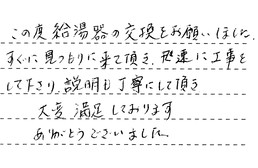 この度給湯器の交換をお願いしました.
すぐに見つもりに来て頂き、迅速に工事を
して下さり、説明も丁寧にして頂き
大変満足しております
ありがとうございました。